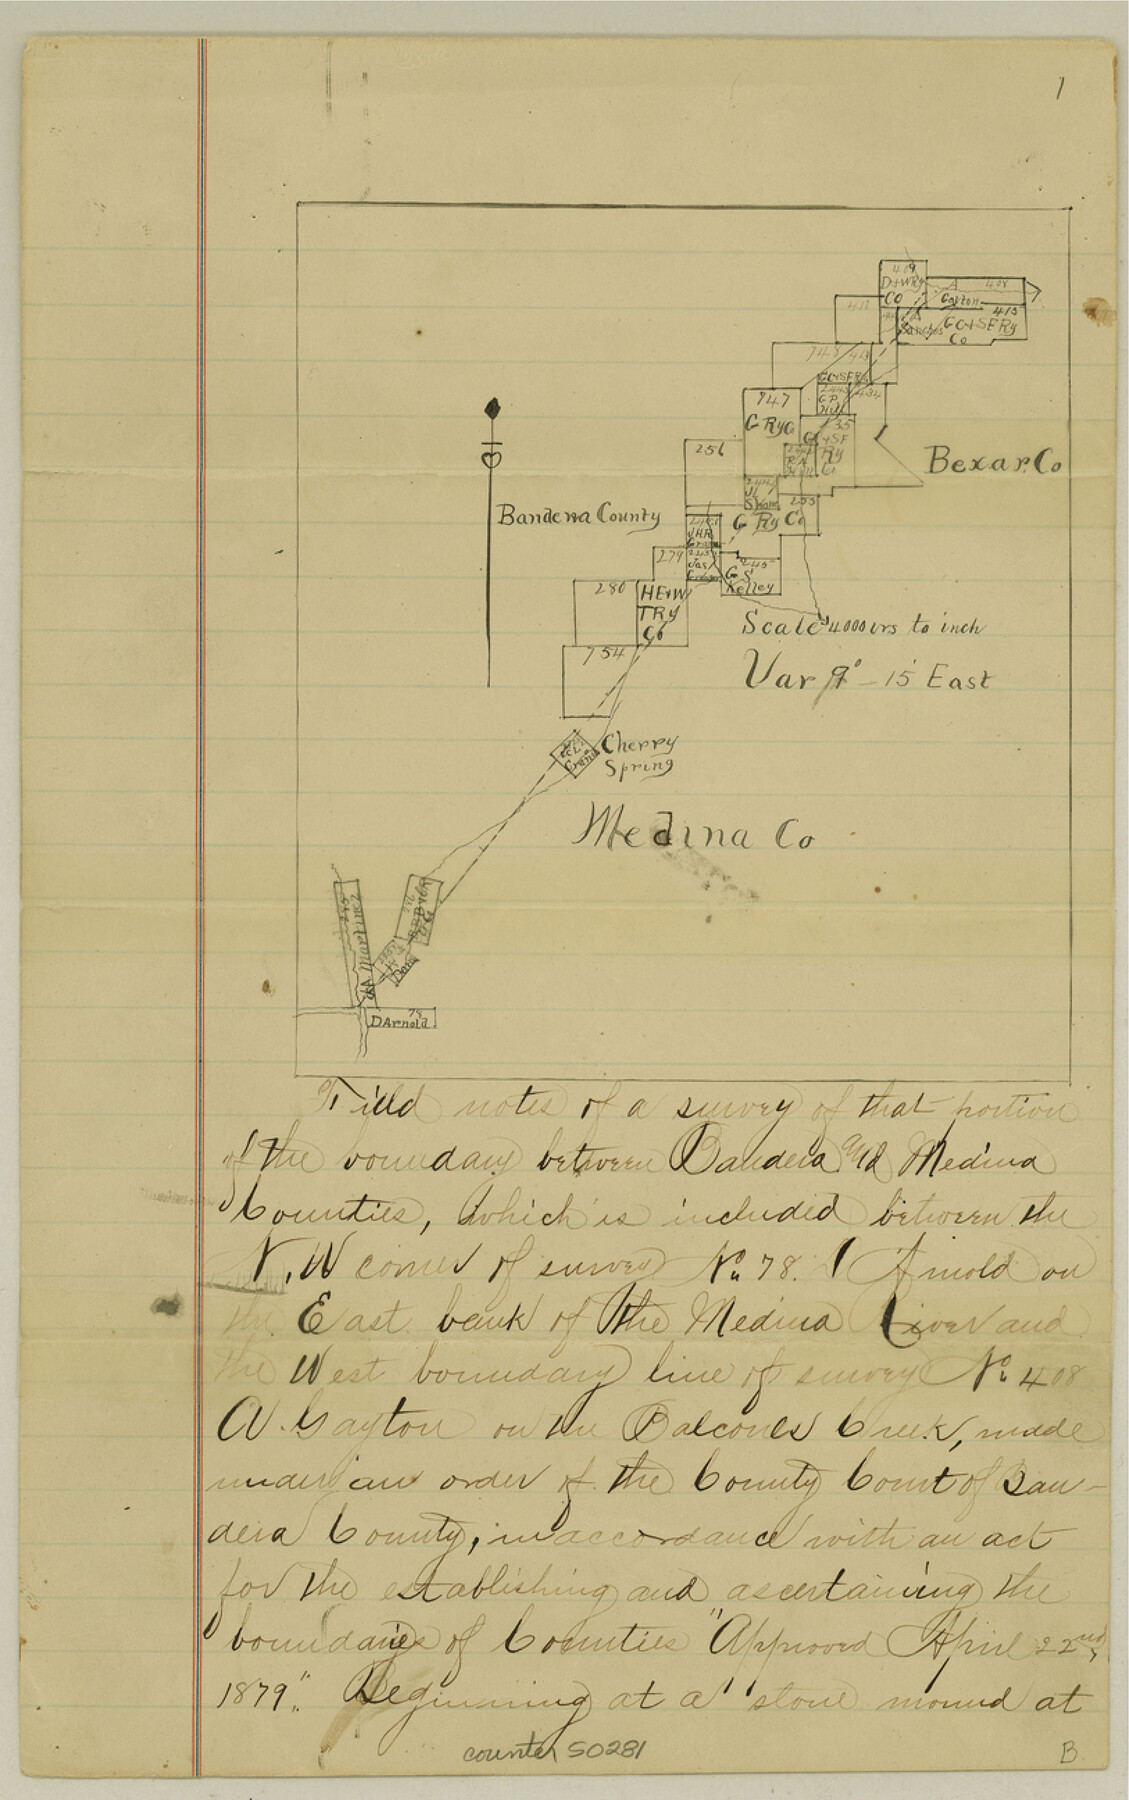 1
409
D+WRy
CO
A
408
Gayton
415
GC+SFRy
Co
748
GC+SFRy
747
G Ry Co
G P
Hill
434
35
GC+SF
Ry
Co
256
Bexar Co
Bandera County
255
G Ry Co
JHR
279
Jas
245
G S
Kelley
280
HE+W
TRy
Co
Scale 4000 vrs to inch
754
Var 9° - 15' East
Cherry
Spring
Medina Co
78
D Arnold
Field notes of a survey of that portion
of the boundary between Bandera and Medina
Counties, which is included between the
N, W corner of survey No 78. Arnold on
the East bank of the Medina River and
the West boundary line of survey No 408
A. Gayton on the Balcones Creek, made
under an order of the County Court of Ban-
dera County, in accordance with an act
for the establishing and ascertaining the
boundaries of Counties "Approved April 22nd,
1879". Beginning at a stone mound at
counter 50281
B